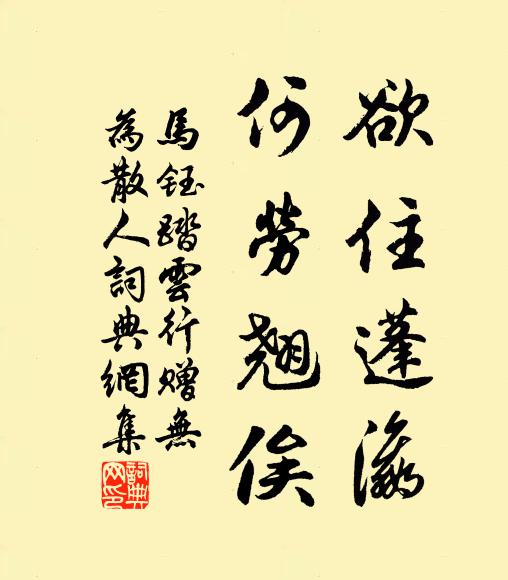 欲住蓬瀛
何勞翹俟
馬鈺踏雲行贈無
為散人詞典網集
詞典網印